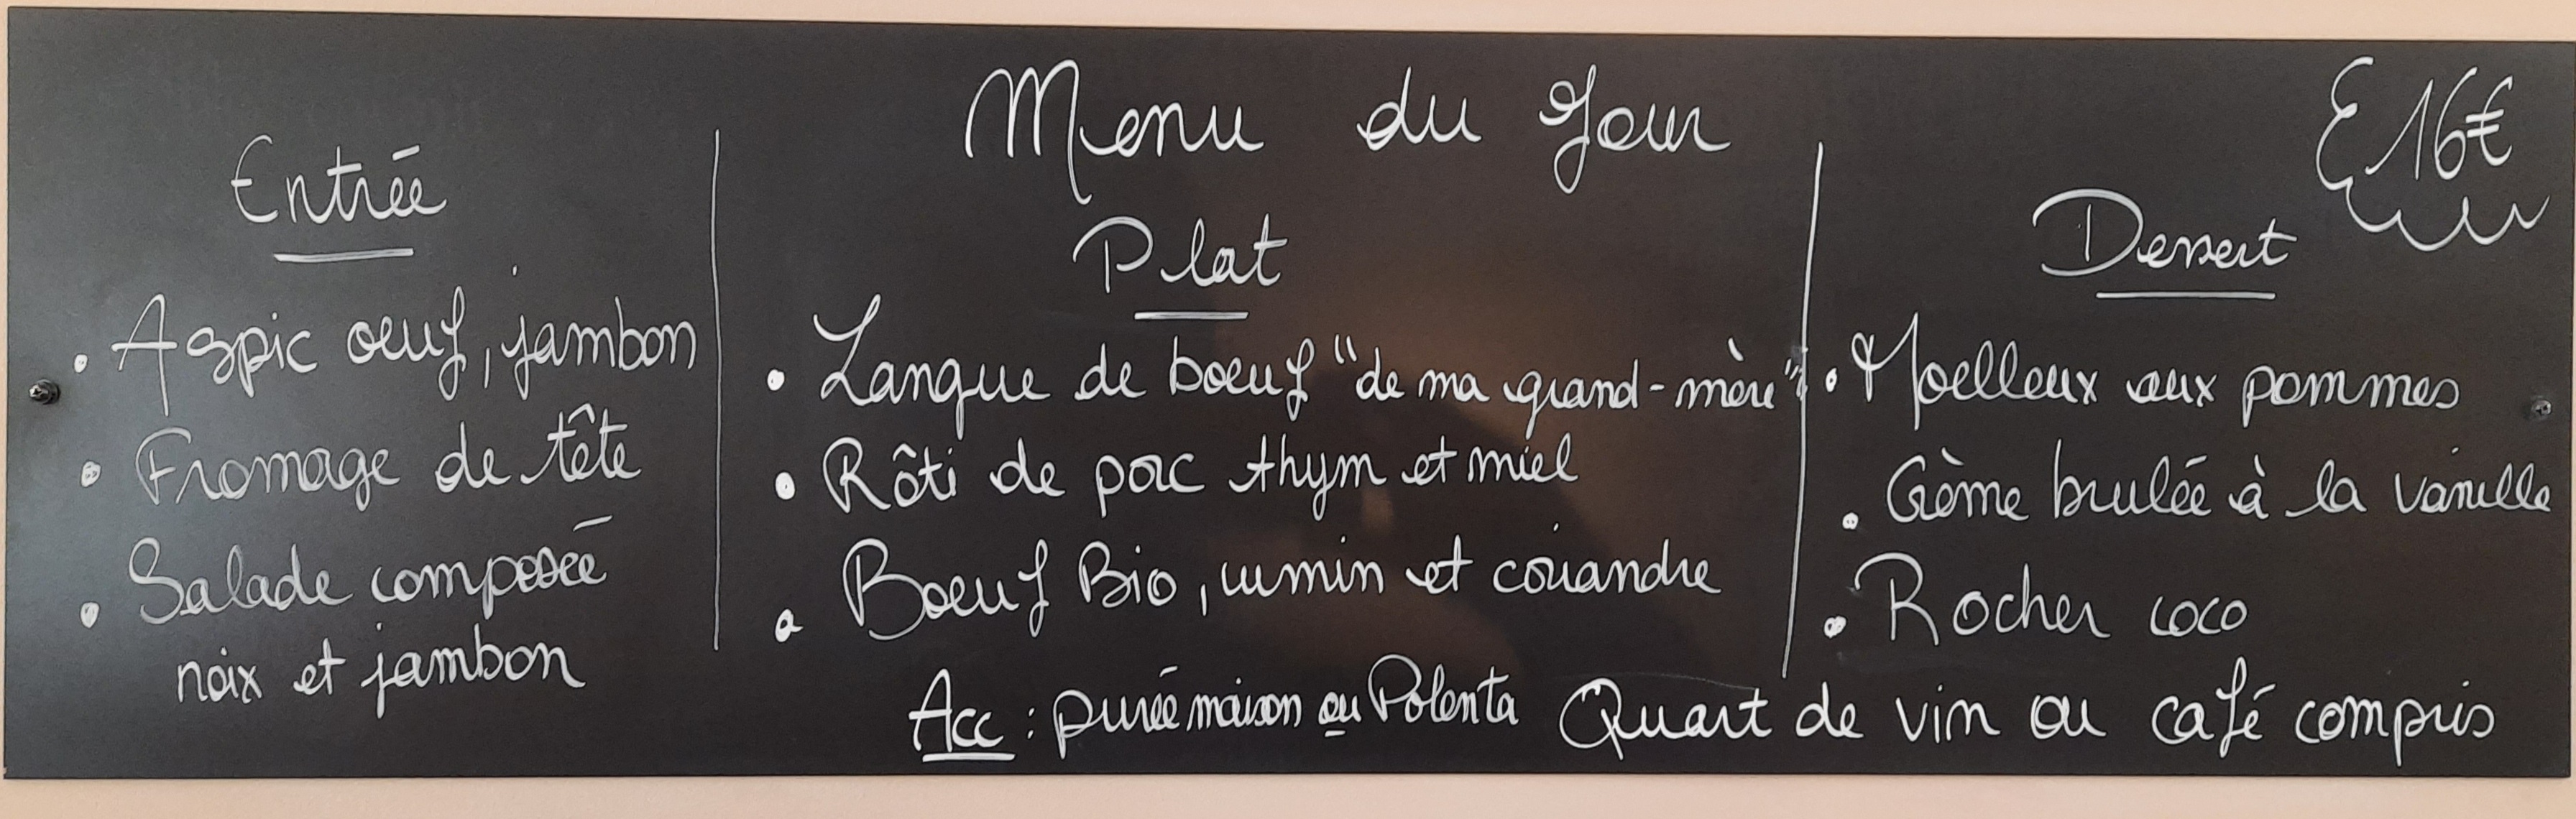 Menu du Jour
16€
Entrée
Aspic oeuf, jambon
Fromage de tête
Salade composée
noix et jambon
Plat
Langue de boeuf "de ma grand-mère"
Rôti de porc thym et miel
Boeuf Bio, cumin et coriandre
Acc : purée maison ou Polenta
Dessert
Moelleux aux pommes
Crème brulée à la vanille
Rocher coco
Quart de vin ou café compris